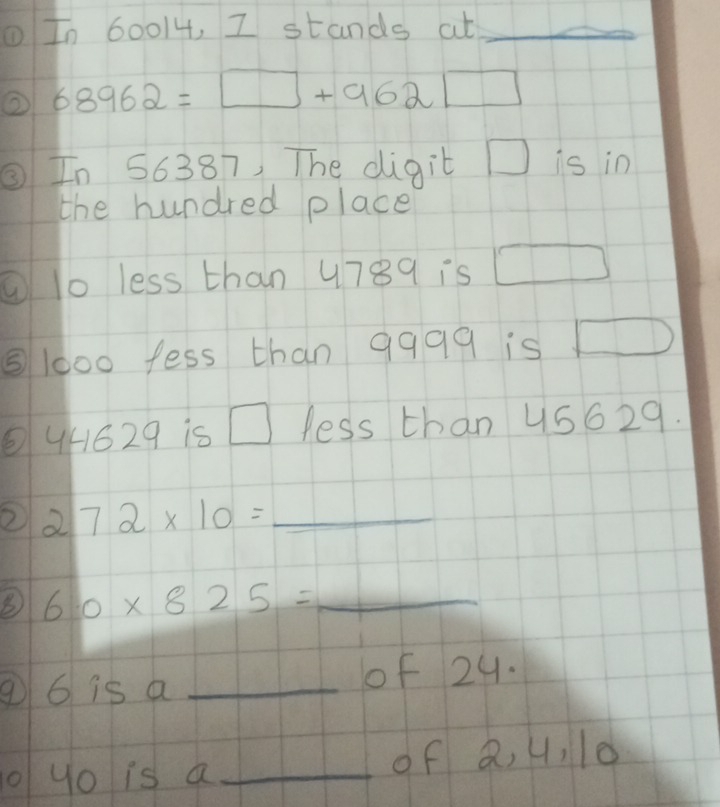 ① In 60014, I stands at ______
② 68962 = □ + 962 □
③ In 56387, The digit □ is in
the hundred place
④ 10 less than 4789 is □
⑤ 1000 less than 9999 is □
⑥ 44629 is □ less than 45629.
⑦ 272 × 10 = ______
⑧ 60 × 825 = ______
⑨ 6 is a ______ of 24.
10 40 is a ______ of 2,4,10